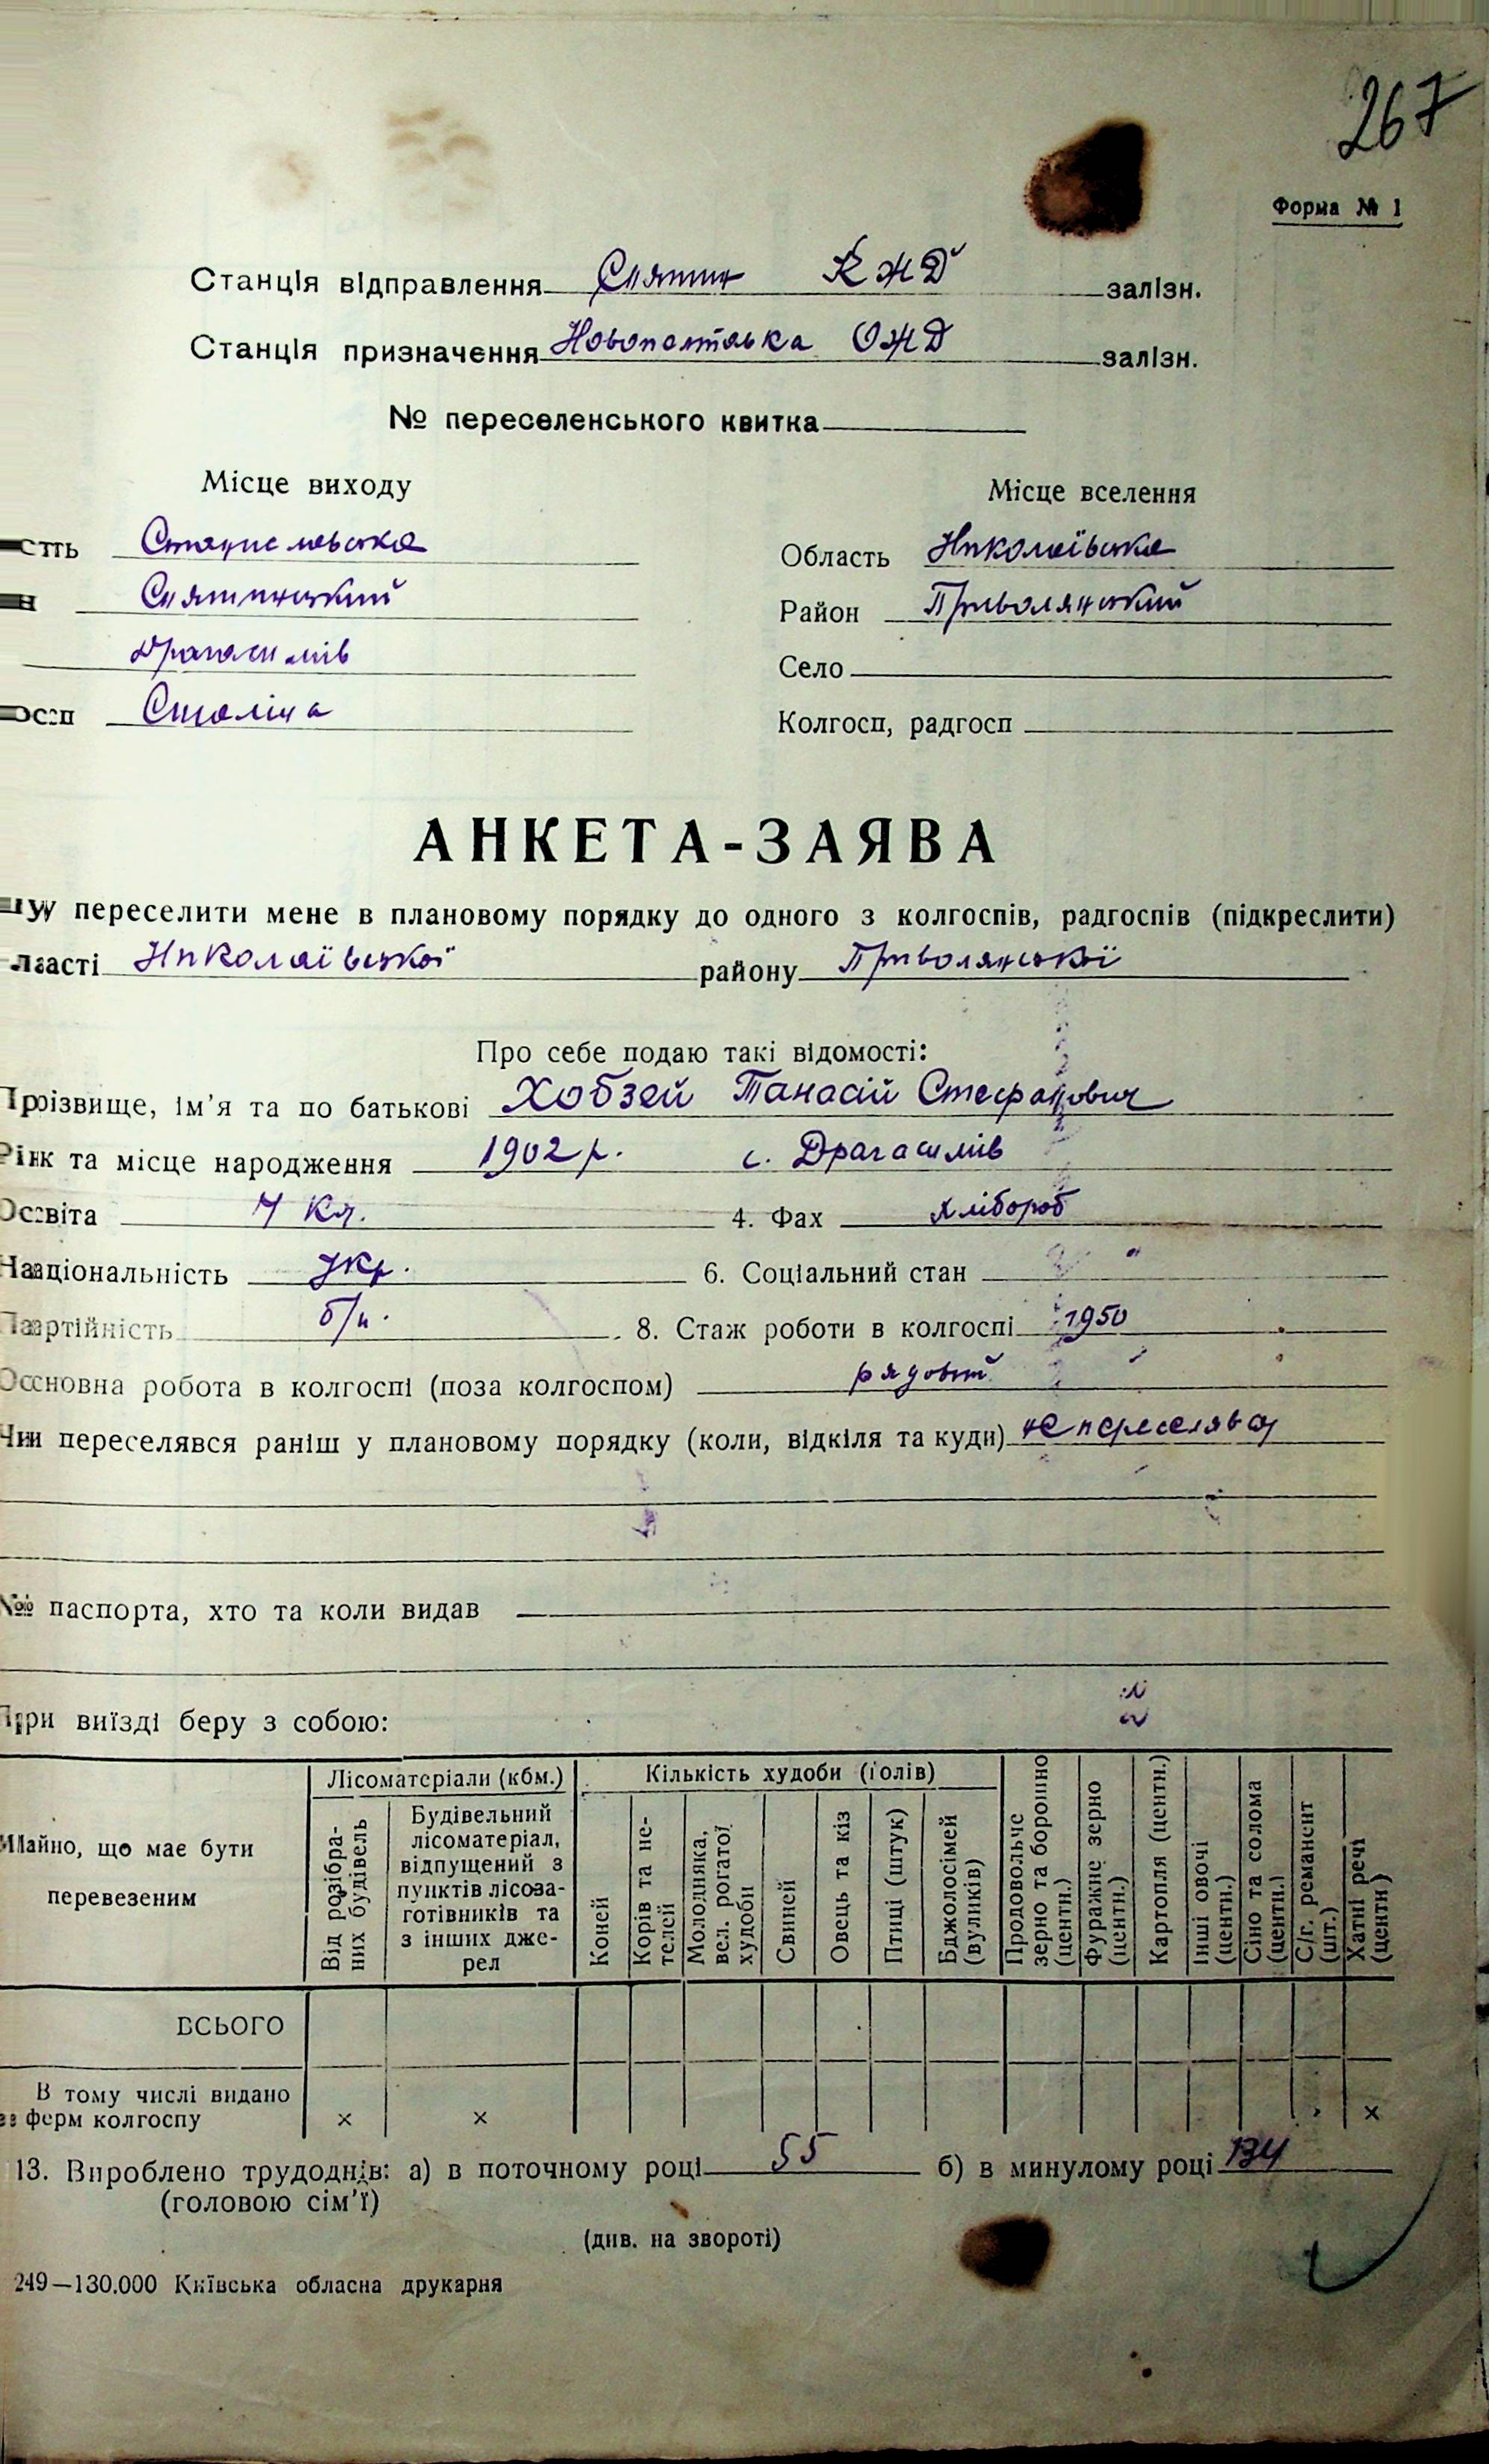 267
Форма № 1
Станція відправлення Снятин КЖД залізн.
Станція призначення Новополтавка ОЖД залізн.
№ переселенського квитка
Місце виходу Місце вселення
Станиславська Область Николаївська
Снятинський Район Привольянський
Драгасимів Село
Сталіна Колгосп, радгосп
АНКЕТА-ЗАЯВА
переселити мене в плановому порядку до одного з колгоспів, радгоспів (підкреслити)
Николаївської району Привольянської
Про себе подаю такі відомості:
Прізвище, ім'я та по батькові Хобзей Танасій Стефанович
Рік та місце народження 1902 р. с. Драгасимів
Освіта 4 Кл. 4. Фах хлібороб
Національність Укр. 6. Соціальний стан "
Партійність б/п. 8. Стаж роботи в колгоспі 1950
Основна робота в колгоспі (поза колгоспом) рядовий
Чи переселявся раніш у плановому порядку (коли, відкіля та куди) не переселявся
№ паспорта, хто та коли видав
При виїзді беру з собою:
Майно, що має бути перевезеним
Лісоматеріали (кбм.)
Від розібраних будівель
Будівельний
лісоматеріал,
відпущений з
пунктів лісоза-
готівників та
з інших дже-
рел
Кількість худоби (голів)
Коней
Корів та не-
телей
Молодняка,
вел. рогатої
худоби
Свиней
Овець та кіз
Птиці (штук)
Бджолосімей
(вуликів)
Продовольче
зерно та борошно
(центн.)
Фуражне зерно
(центн.)
Картопля (центн.)
Інші овочі
(центн.)
Сіно та солома
(центн.)
С/г. реманент
(шт.)
Хатні речі
(центн)
ВСЬОГО
В тому числі видано
ферм колгоспу × × ×
13. Вироблено трудоднів: а) в поточному році 55 б) в минулому році 134
(головою сім'ї)
(див. на звороті)
249—130.000 Київська обласна друкарня